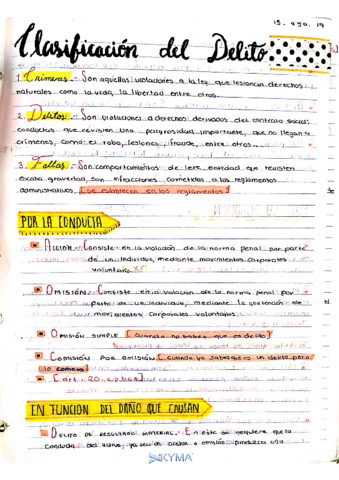 15. ago. 19
Clasificación del Delito
1. Crimenes.- Son aquellas violaciones a la ley que lesionan derechos
naturales como la vida, la libertad entre otros.
2. Delitos.- Son violaciones a derechos derivados del contrato social,
conductas que revisten una peligrosidad importante, que no llegan a
crímenes, como el robo, lesiones, fraude, entre otros..
3. Faltas.- Son comportamientos de leve entidad que revisten
escasa gravedad son infracciones cometidas a los reglamentos
administrativos. [se establecen en los reglamentos]
POR LA CONDUCTA
ACCION.- Consiste en la violación de la norma penal por parte
de un individuo, mediante movimientos corporales
voluntario.
OMISIÓN.- Consiste en la violación de la norma penal por
parte de un individuo, mediante la abstención de
movimientos corporales voluntarios.
OMISIÓN SIMPLE [Cuando no sabes que es delito]
COMISIÓN POR OMISIÓN [cuando ya sabes que es un delito pero
lo cometes]
[art. 20 c.p.b.c.s]
EN FUNCION DEL DAÑO QUE CAUSAN
DELITO DE RESULTADO MATERIAL.- En este se requiere que la
conducta del activo, ya sea de acción o omisión produzca una
SKYMA